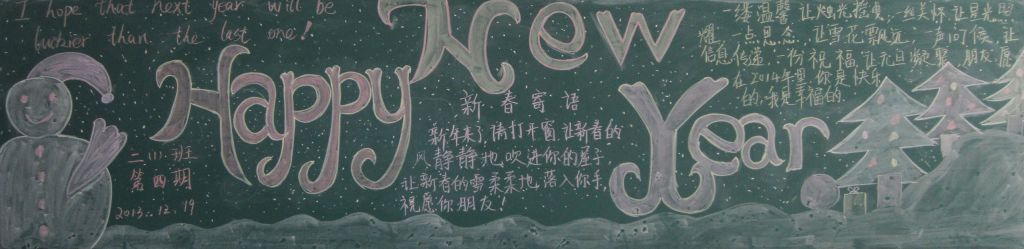 I hope that next year will be
luckier than the last one!
Happy New Year
新春寄语
新年来了,请打开窗,让新春的
风静静地吹进你的屋子
让新春的雪柔柔地落入你手,
祝愿你朋友!
二(1)班
第四期
2013.12.19
缕温馨,让烛光捡曳;丝关怀让星光照
耀,一点思念,让雪花飘远;声问候,让
信息传递,一份祝福,让元旦凝聚,朋友,愿
在2014年里,你是快乐
的,我是幸福的